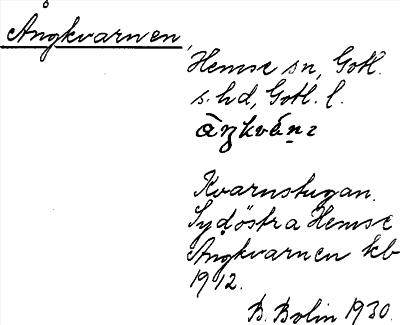 Ångkvarnen,
Hemse sn, Gotl.
s. hd, Gotl. l.
Kvarnstugan.
Sydöstra Hemse
Ångkvarnen kb
1912.
B. Bolin 1930.